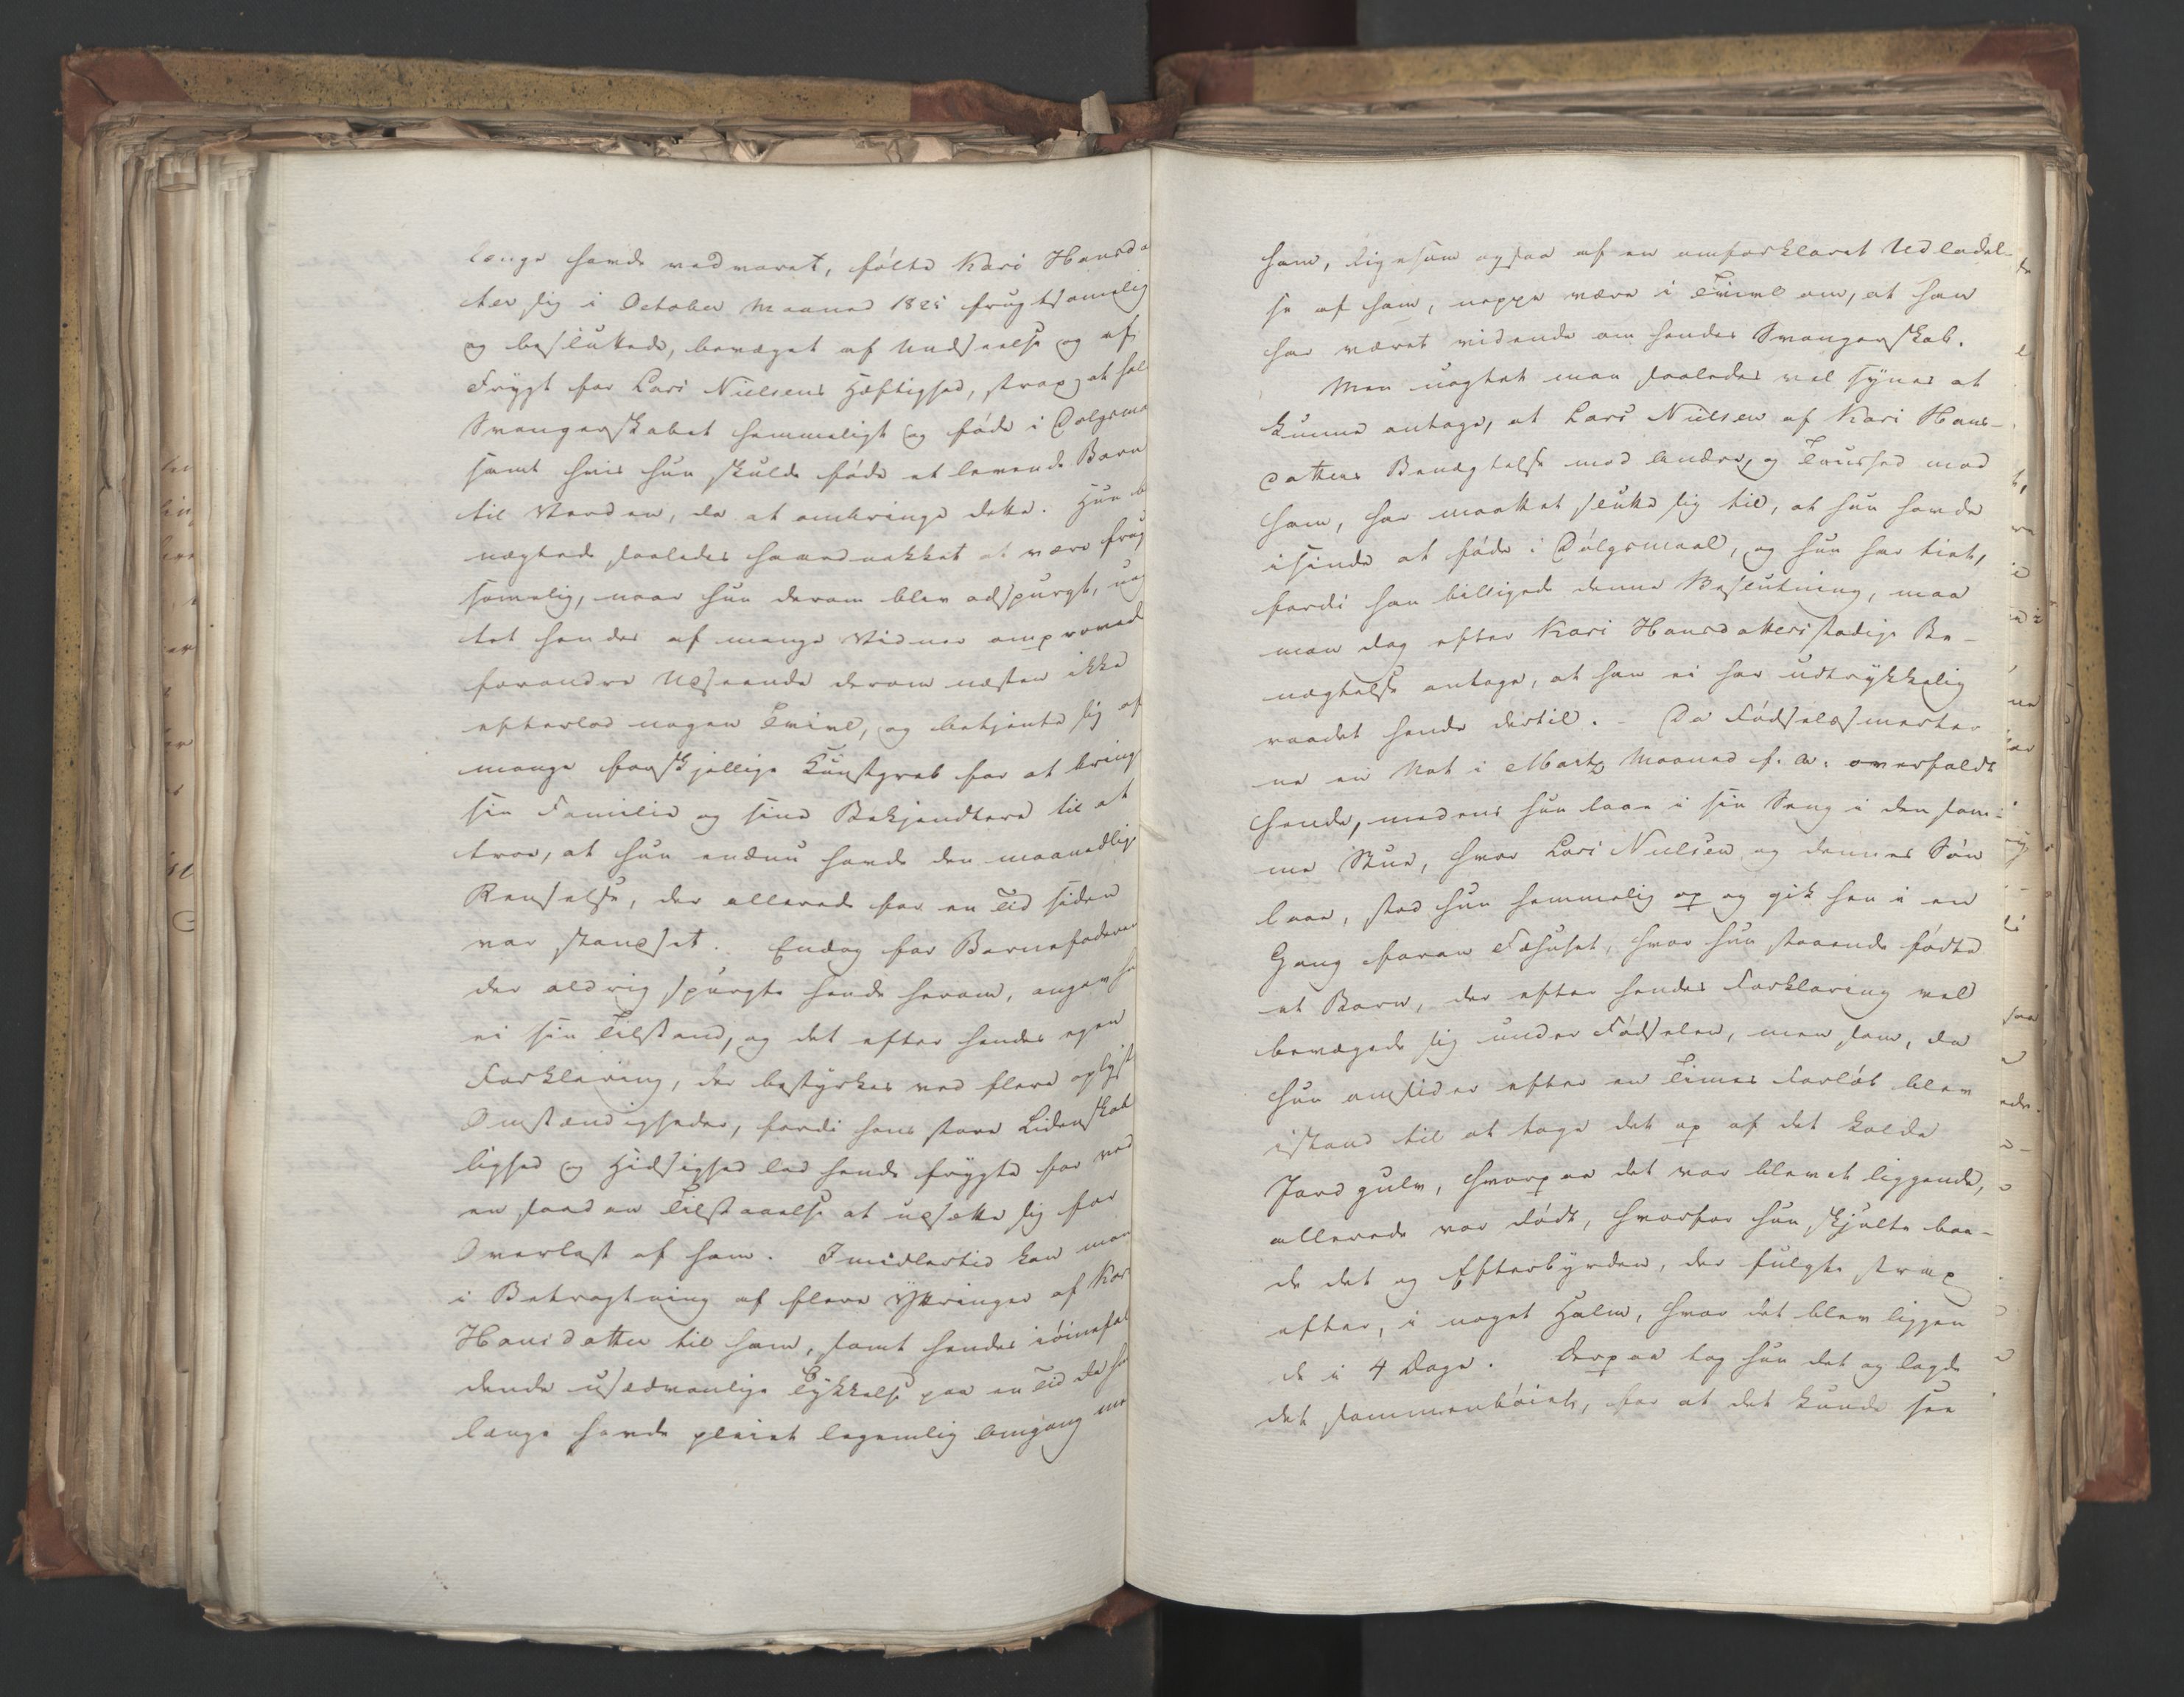 længe havde vedvaret, følte Kari Hansda
ter sig i October Maaned 1825 frugtsomelig
og besluttede, bevæget af Undseelse og af
Frygt for Lars Nielsens Hæftighed, strax, at hol
Svangerskabet hemmeligt og føde i Dølgsma
samt hvis hun skulde føde et levende Barn
til Verden, da at ombringe dette. Hun b
nægtede saaledes haardnakket at være frug
somelig, naar hun derom blev adspurgt, uag
tet hendes af mange Vidner omprovede
forandre Udseende derom næsten ikke
efterlod nogen Tvivl, og betjente sig af
mange forskjellige Kunstgreb for at bringe
sin Familie og sine Bekjendtere til at
troe, at hun endnu havde den maanedlige
Renselse, der allerede for en Tid siden
var standset. Endog for Barnefaderen
der aldrig spurgte hende herom, angav hu
ei sin Tilstand, og det efter hendes egen
Forklaring, der bestyrkes ved flere oplyste
Omstændigheder, fordi hans store Lidenskab
lighed og Hidsighed lod hende frygte for ved
en saadan Tilstaaelse at udsætte sig for
Overlast af ham. Imidlertid kan man
i Betragtning af flere Yttringer af Kar
Hansdatter til ham, samt hendes iøinefal
dende usædvanlige Tykkelse paa en Tid da ha
længe havde pleiet legemlig Omgang me
ham, ligesom ogsaa af en omforklaret Udladel-
se af ham, neppe være i Tvivl om, at han
har været vidende om hendes Svangerskab.
Men uagtet man saaledes vel synes at
kunne antage, at Lars Nielsen af Kari Hans-
datters Benægtelse mod Andre, og Taushed mod
ham, har maattet slutte sig til, at hun havde
isinde at føde i Dølgsmaal, og hun har tiet,
fordi han billigede denne Beslutning, maa
man dog efter Kari Hansdatters stadige Be-
nægtelse antage, at han ei har udtrykkelig
raadet hende dertil. - Da Fødselssmerter
ne en Nat i Martz Maaned f. A. overfaldt
hende, medens hun laae i sin Seng i den sam-
me Stue, hvor Lars Nielsen og dennes Søn
laae, stod hun hemmelig op og gik hen i en
Gang foran Fæhuset, hvor hun staaende fødte
et Barn, der efter hendes Forklaring vel
bevægede sig under Fødselen, men som, da
hun omsider efter en Times Forløb blev
istand til at tage det op af det kolde
Jordgulv, hvorpaa det var blevet liggende,
allerede var dødt, hvorfor hun skjulte baa-
de det og Efterbyrden, der fulgte strax
efter, i noget Halm, hvor det blev liggen
de i 4 Dage. Derpaa tog hun det og lagde
det sammenbøiet, for at det kunde see